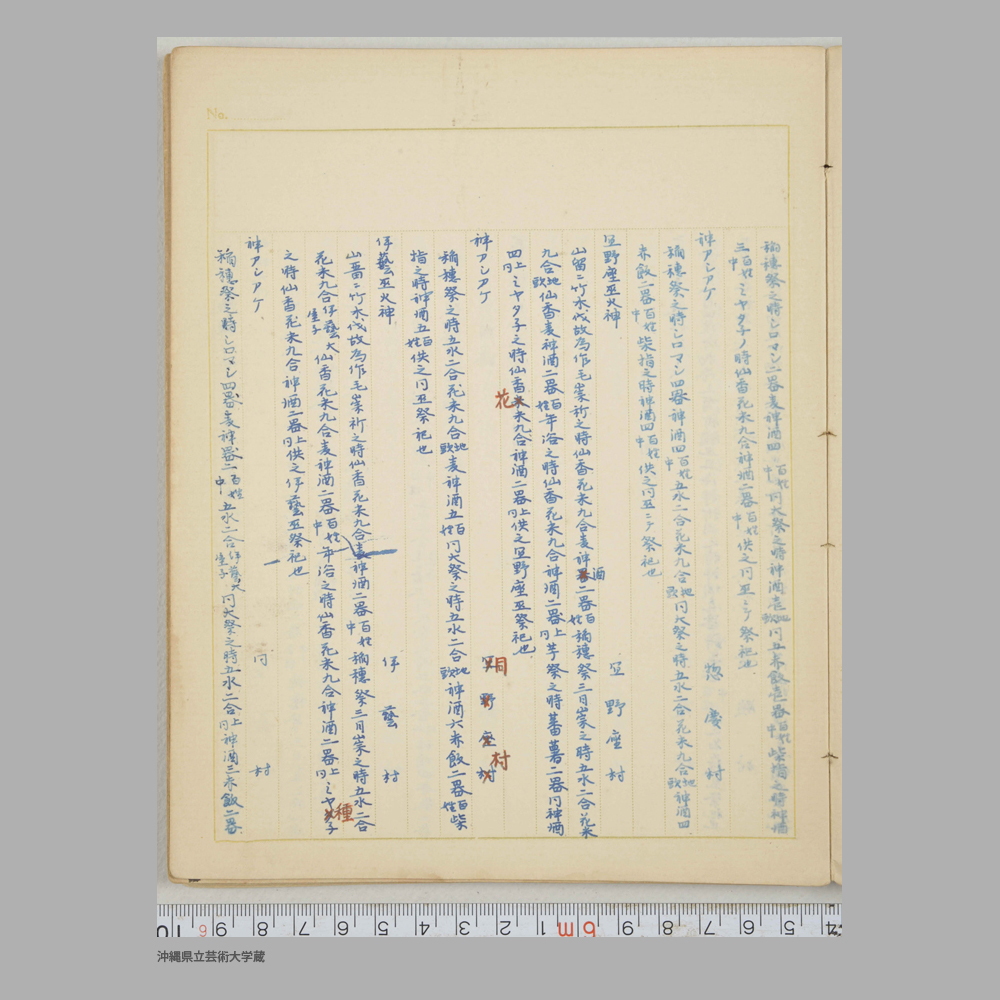 稲穂祭之時シロマシ二器麦神酒四百姓中同大祭之時神酒壱地頭同五赤飯壱器百姓中柴指之時神酒
三百姓中ミヤタ子ノ時仙香花米九合神酒二器百姓中供之同巫ニテ祭祀也
神アシアケ 惣慶村
稲穂祭之時シロマシ四器神酒四百姓中五水二合花米九合地頭同大祭之時五水二合花米九合地頭神酒四
赤飯二器百姓中柴指之時神酒四百姓中供之同巫ニテ祭祀也
宜野座巫火神 宜野座村
山留ニ竹木伐故為作毛崇祈之時仙香花米九合麦神酒二器百姓稲穂祭三日崇之時五水二合花米
九合地頭仙香麦神酒二器百姓年浴之時仙香花米九合神酒二器同上芋祭之時蕃薯二器同神酒
四同上ミヤタ子之時仙香花米九合神酒二器同上供之宜野座巫祭祀也
神アシアケ 同村
稲穂祭之時五水二合花米九合地頭麦神酒五百姓同大祭之時五水二合地頭神酒六赤飯二器百姓柴
指之時神酒五百姓供之同巫祭祀也
伊藝巫火神 伊藝村
山留ニ竹木伐故為作毛崇祈之時仙香花米九合麦神酒二器百姓中稲穂祭三日崇之時五水二合
花米九合伊藝大仙香花米九合麦神酒二器百姓中年浴之時仙香花米九合神酒二器同上ミヤ種子
之時仙香花米九合神酒二器同上供之伊藝巫祭祀也
神アシアケ 同村
稲穂祭之時シロマシ四器麦神器二百姓中五水二合伊藝大同大祭之時五水二合同上神酒三赤飯二器
No.
沖縄県立芸術大学蔵